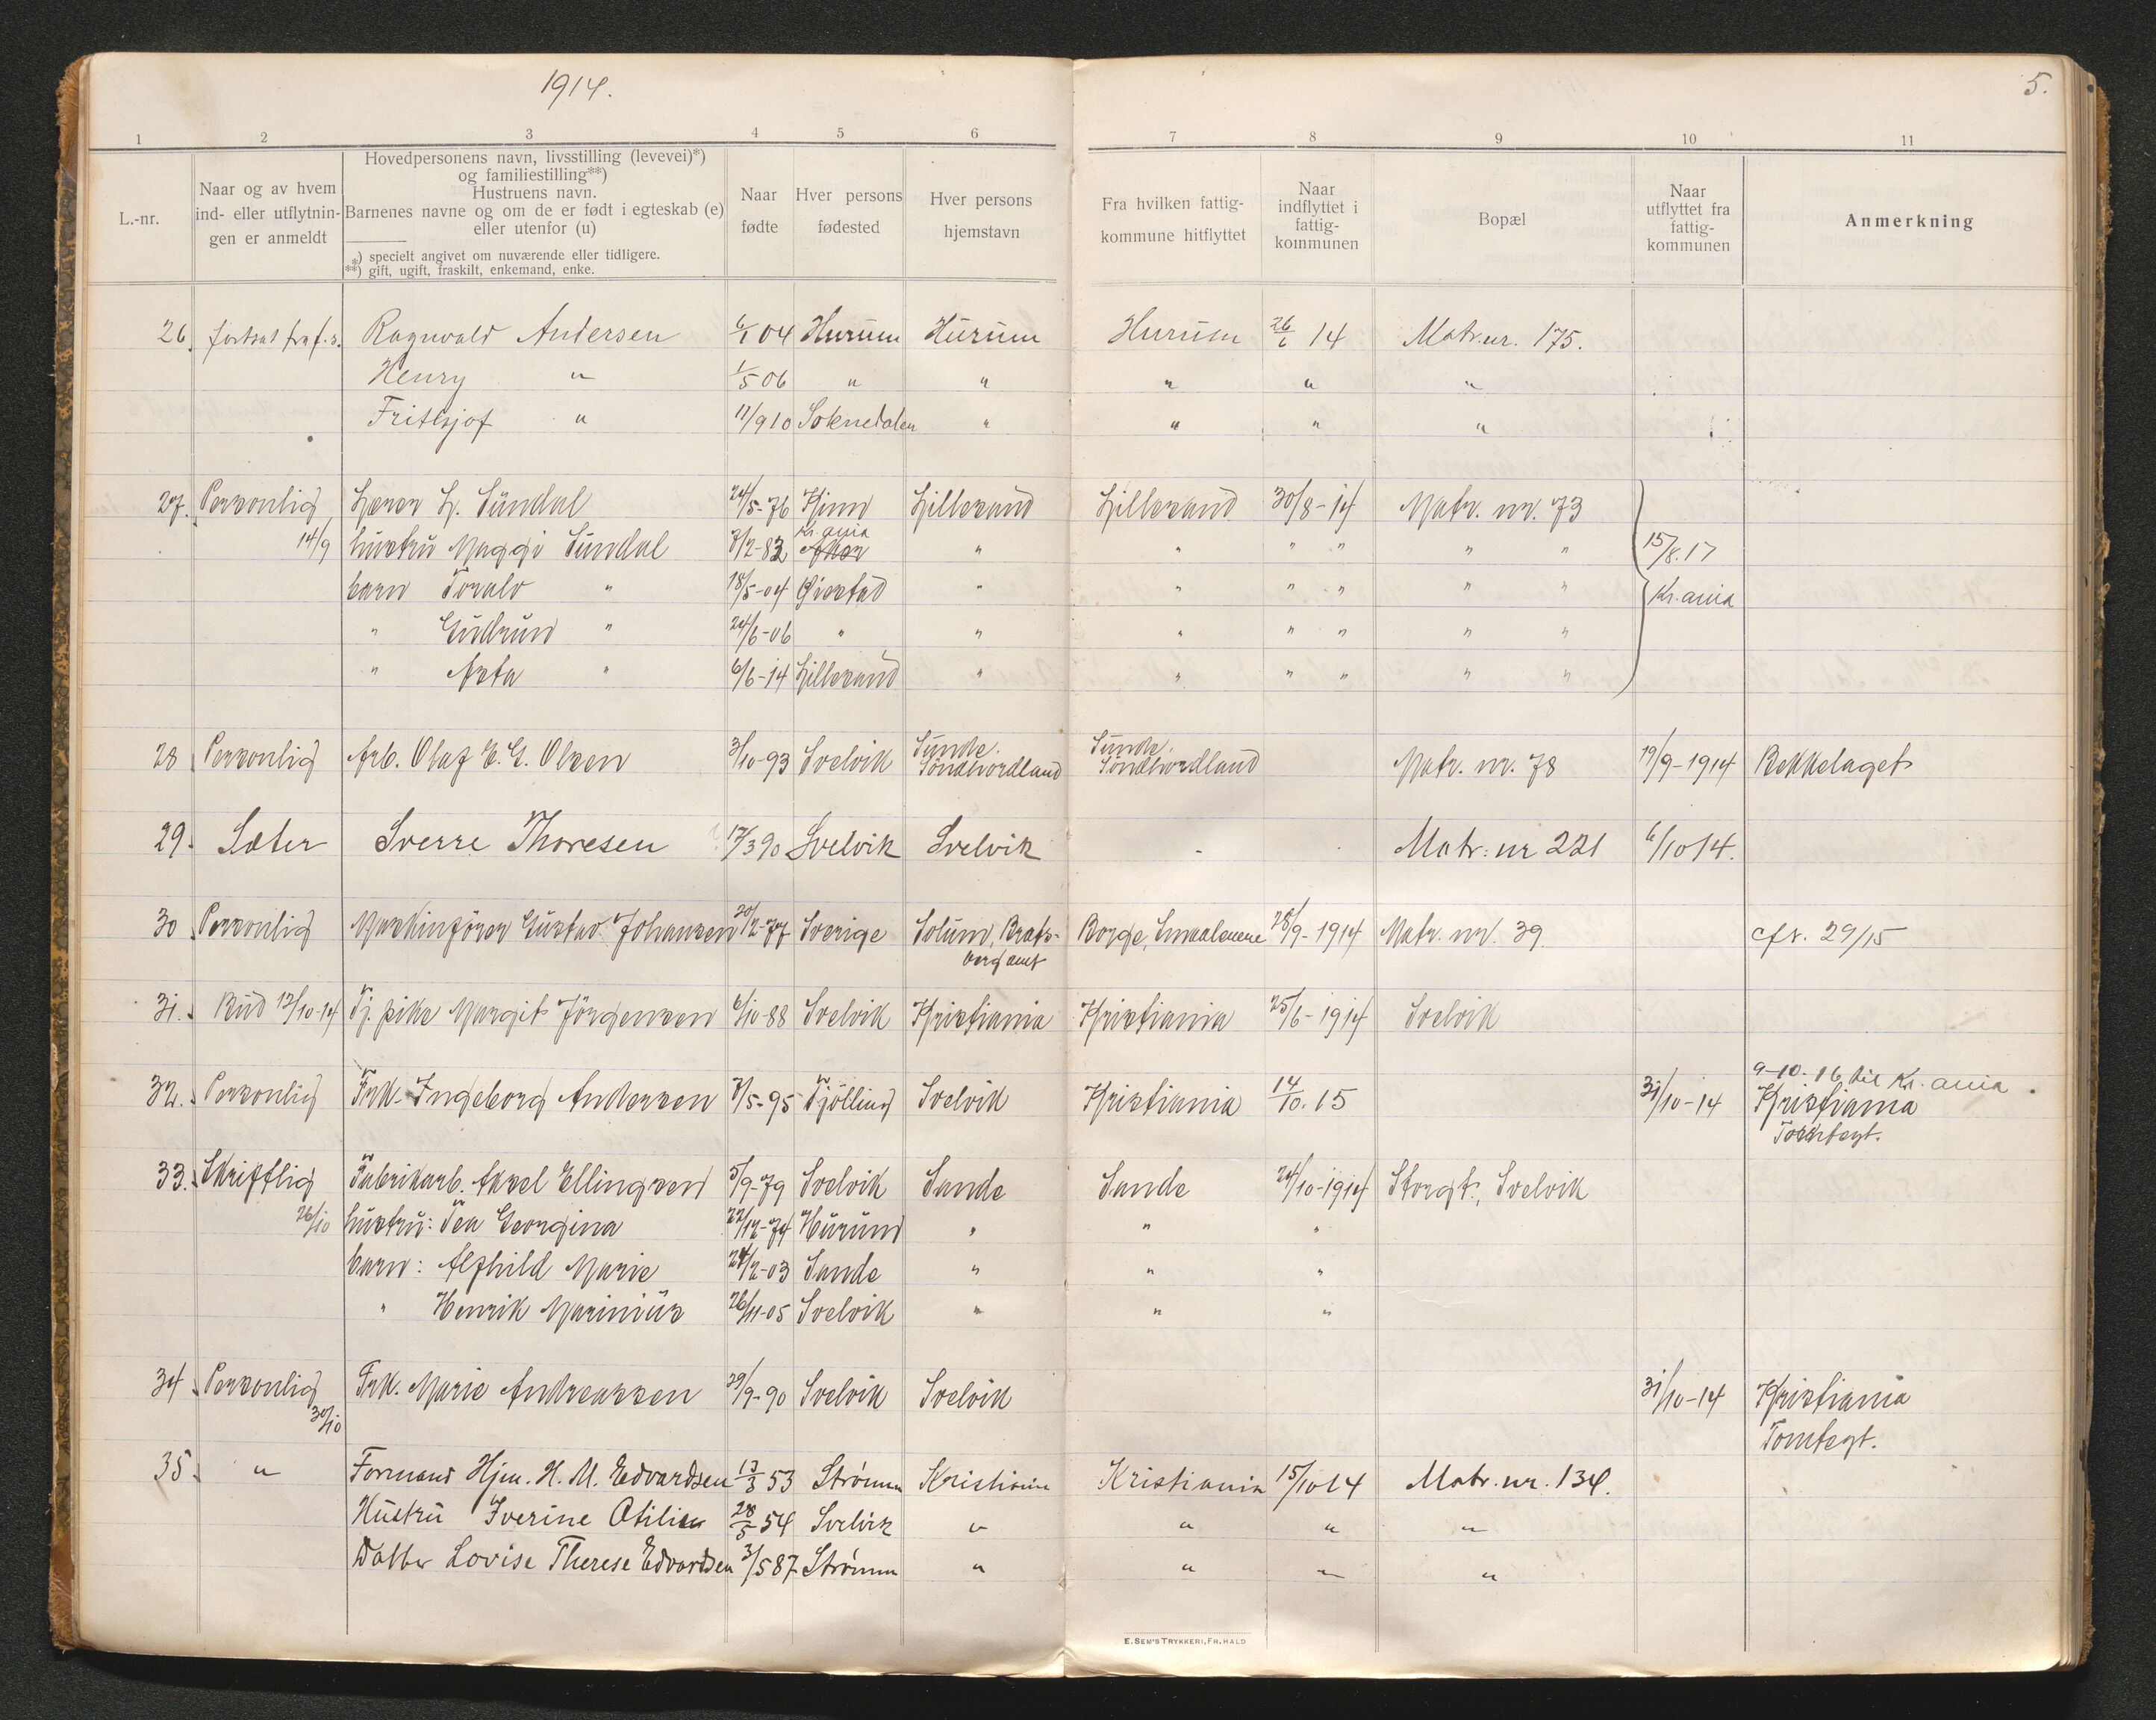 1914.
5.
1 2 3 4 5 6 7 8 9 10 11
L.-nr.
Naar og av hvem
ind- eller utflytnin-
gen er anmeldt
Hovedpersonens navn, livsstilling (levevei)*)
og familiestilling**)
Hustruens navn.
Barnenes navne og om de er født i egteskab (e)
eller utenfor (u)
*) specielt angivet om nuværende eller tidligere.
**) gift, ugift, fraskilt, enkemand, enke.
Naar
fødte
Hver persons
fødested
Hver persons
hjemstavn
Fra hvilken fattig-
kommune hitflyttet
Naar
indflyttet i
fattig-
kommunen
Bopæl
Naar
utflyttet fra
fattig-
kommunen
Anmerkning
26. fortsat fra f. s. Ragnvald Andersen 6/1 04 Hurum Hurum Hurum 26/6 14 Matr. nr. 175.
Henry " 1/5 06 " " " " "
Frithjof " 11/9 10 Soknedalen " " " "
27. Personlig Lærer L. Sundal 24/5-76 Kinn Lillesand Lillesand 30/8-14 Matr. nr. 73
14/9 hustru Maggi Sundal 7/2-83 Kr.ania " " " " " " 15/8.17
barn Toralv " 18/5-04 Gjestad " " " " " " Kr.ania
" Gudrun " 24/6-06 " " " " " " "
" Asta " 6/6-14 Lillesand " " " " " "
28 Personlig Arb. Olaf E. G. Olsen 3/10-93 Svelvik Sunde. Sunde.
Söndhordland Söndhordland Matr. nr. 78 19/9-1914 Bekkelaget
29. Sæter Sverre Thoresen 17/3 90 Svelvik Svelvik - Matr. nr 221 6/10 14.
30 Personlig Maskinfører Gustav Johansen 20/12-77 Sverige Solum, Brats- Borge, Smaalenene 28/9-1914 Matr. nr. 39. cfr. 29/15
berg amt
31. Bud 12/10-14 Tj. pike Margit Jörgensen 6/10-88 Svelvik Kristiania Kristiania 25/6-1914 Svelvik
9-10.16 til Kr.ania.
32. Personlig Frk. Ingeborg Andersen 7/5-95 Tjölling Svelvik Kristiania 14/10.15 31/10-14 Kristiania
33. Skriftlig Fabrikarb. Aksel Ellingsen 5/9-79 Svelvik Sande Sande 24/10-1914 Storgt., Svelvik
26/10 hustru: Tea Georgina 22/12-74 Hurum " " "
barn: Alfhild Marie 24/2-03 Sande " " "
" Henrik Marinius 26/11-05 Svelvik " " "
34 Personlig Frk. Marie Andreassen 29/9-90 Svelvik Svelvik 31/10-14 Kristiania
30/10 Tomtegt.
35. " Formand Hjm. H. M. Edvardsen 13/3 53 Strømm Kristiania Kristiania 15/10 14 Matr. nr. 134.
Hustru Iverine Otilie 28/5 54 Svelvik " " " "
Datter Lovise Therese Edvardsen 3/5 87 Strømm " " " "
E. SEM'S TRYKKERI, FR. HALD